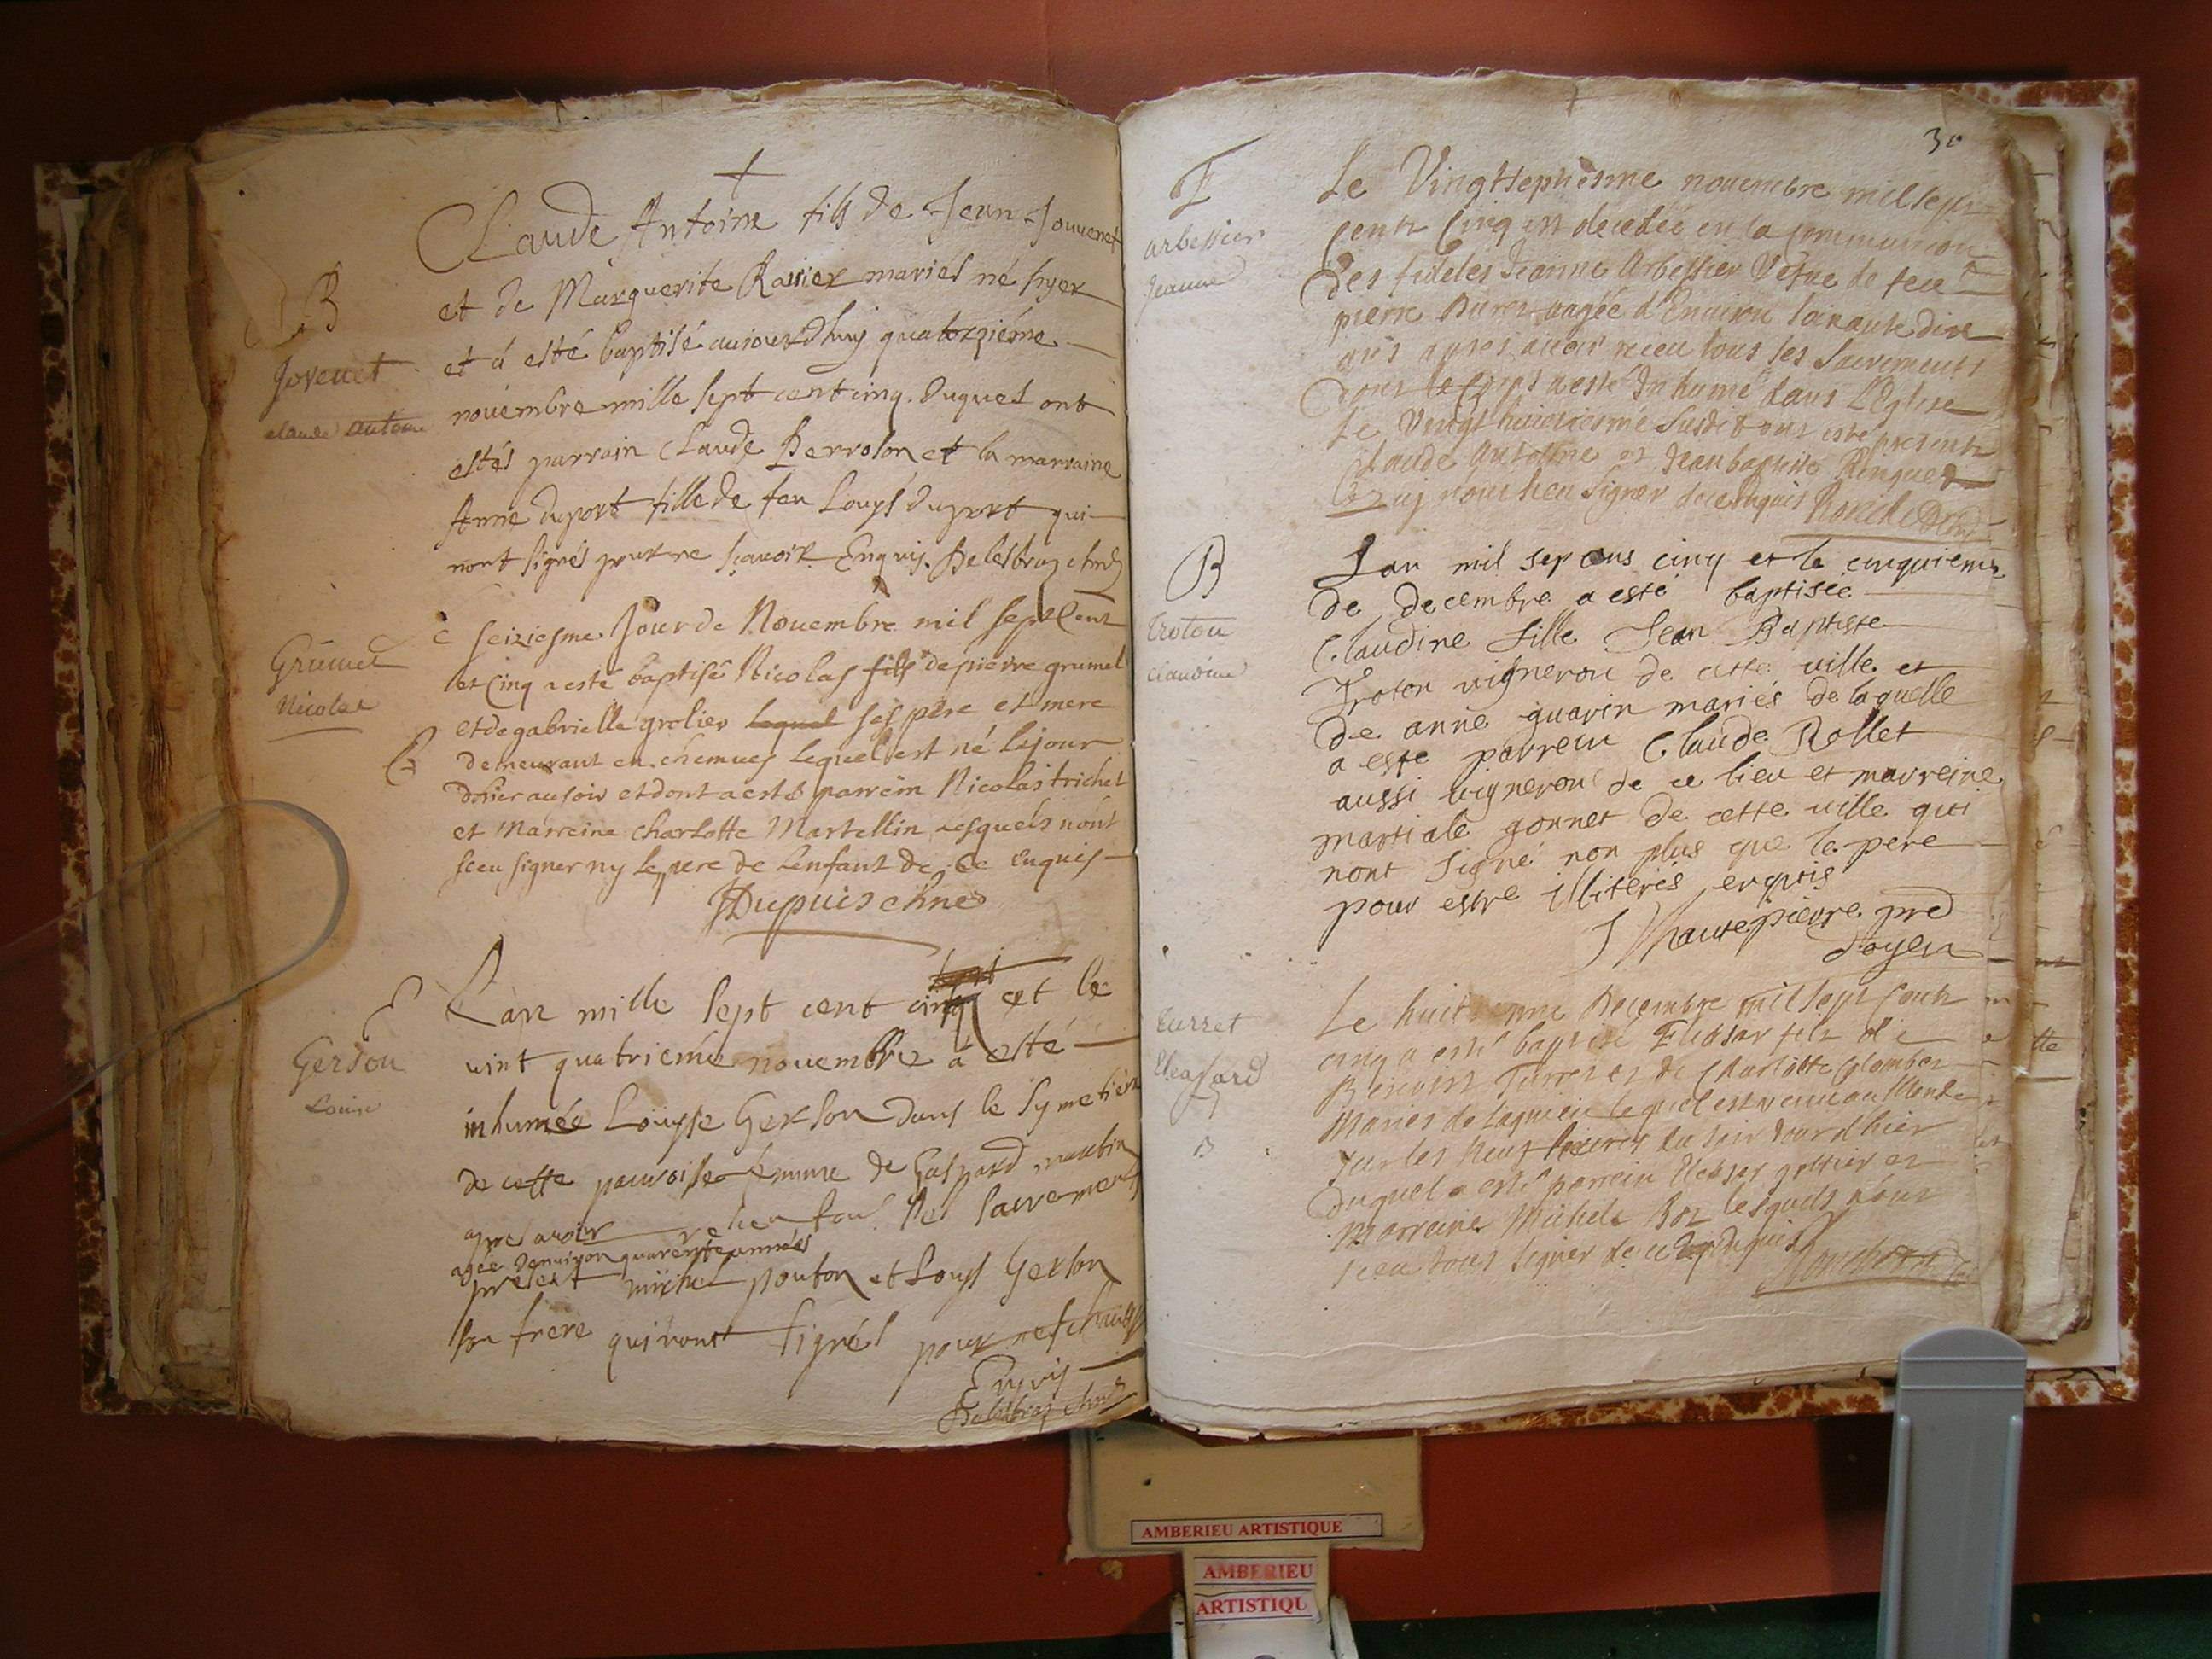 Claude Antoine fils de Jean Jouvenet
et de Marguerite Ravier mariés né hyer
et à esté baptisé aujourdhuy quatorziéme
B
Jovenet
Claude Antoine
novembre mille sept cent cinq. Duquel ont
estés parrain Claude Perrolon et la marraine
Anne duport fille de feu Louys duport qui
nont signés pour ne sçavoir Enquis.
Grumel
Nicolas
B
e seiziesme Jour de Novembre mil sept Cent
et Cinq a esté baptisé Nicolas fils de pierre grumel
et de gabrielle grolier lequel ses père et mere
demeurant en chemues lequel est né le jour
d'hier au soir et dont a esté parrein Nicolas trichet
et Marreine charlotte Martellin lesquels n'ont
sceu signer ny le pere de lenfant de ce enquis
Dupuis chne
Gerson
Louise
Lan mille sept cent cinq et le
vint quatrieme novembre à esté
inhumée Louyse Gerson dans le Symetière
de cette parroisse femme de Gaspard
apres avoir receu tous les sacrements
agée denviron quarente années
présent michel pouton et Louys Gerson
son frere qui nont signés pour ne
Enquis
30
arbessier
Jeanne
Le Vingtsephiesme novembre mil sept
cents Cinq est decedée en la communion
des fideles Jeanne Arbessier Vefve de feu
pierre aagée d'Environ soixante dix
ans apres avoir receu tous ses Sacrements
dont le Corps a esté Inhumé dans L'Eglise
Le Vingt huictiesme susdit ont esté presents
Claude Antoine et Jean baptiste Ringuet
qui nont sceu signer de ce Enquis
B
Troton
Claudine
Lan mil sep cens cinq et le cinquieme
de decembre a esté baptisée
Claudine fille Jean Baptiste
Troton vigneron de cette ville et
de anne guarin mariés de laquelle
a este parrein Claude Rollet
aussi vigneron de ce lieu et marreine
martiale gonnet de cette ville qui
nont signé non plus que le pere
pour estre illiterés enquis
J Hautepierre pred
Doyen
Turret
Eleasard
B
Le huit Decembre mil sept Cents
cinq a esté baptisé Eleasar fils de
Benoist Turret et de Charlotte Colombet
Mariés de Lagnieu lequel est venu au Monde
sur les neuf heures du soir Jour d'hier
Duquel a esté parrein Eleasar grottier et
Marreine Michele lesquels n'ont
sceu tous signer de ce Enquis
AMBERIEU ARTISTIQUE
AMBERIEU
ARTISTIQU